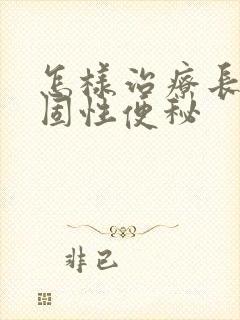 怎樣治療長
固性便秘
非已